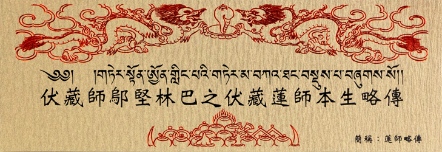 ༄༅། །གཏེར་སྟོན་ཨྱོན་གླིང་པའི་གཏེར་མ་བཀའ་ཐང་བསྡུས་པ་བཞུགས་སོ།།
伏藏師鄔堅林巴之伏藏蓮師本生略傳
簡稱：蓮師略傳